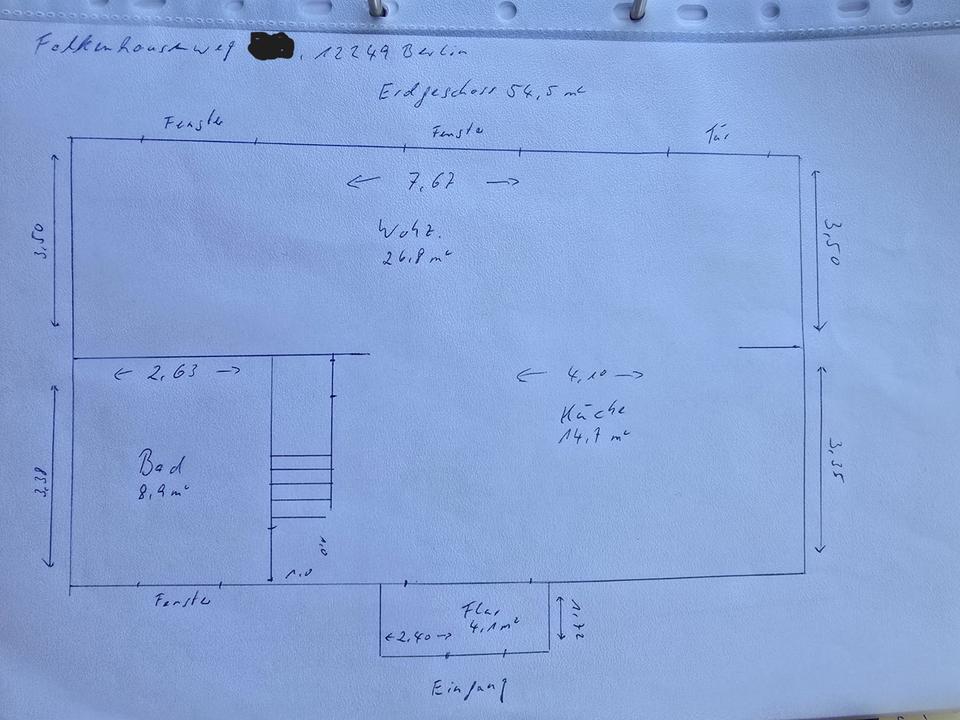 Falkenhausenweg , 12249 Berlin
Erdgeschoss 54,5 m²
Fenster Fenster Tür
7,67
Wohz.
26,8 m²
3,50 3,50
2,63 4,10
Küche
14,7 m²
Bad
8,9 m²
3,38 3,35
1,0
1,0
Fenster
Flur
4,1 m²
2,40 1,72
Eingang